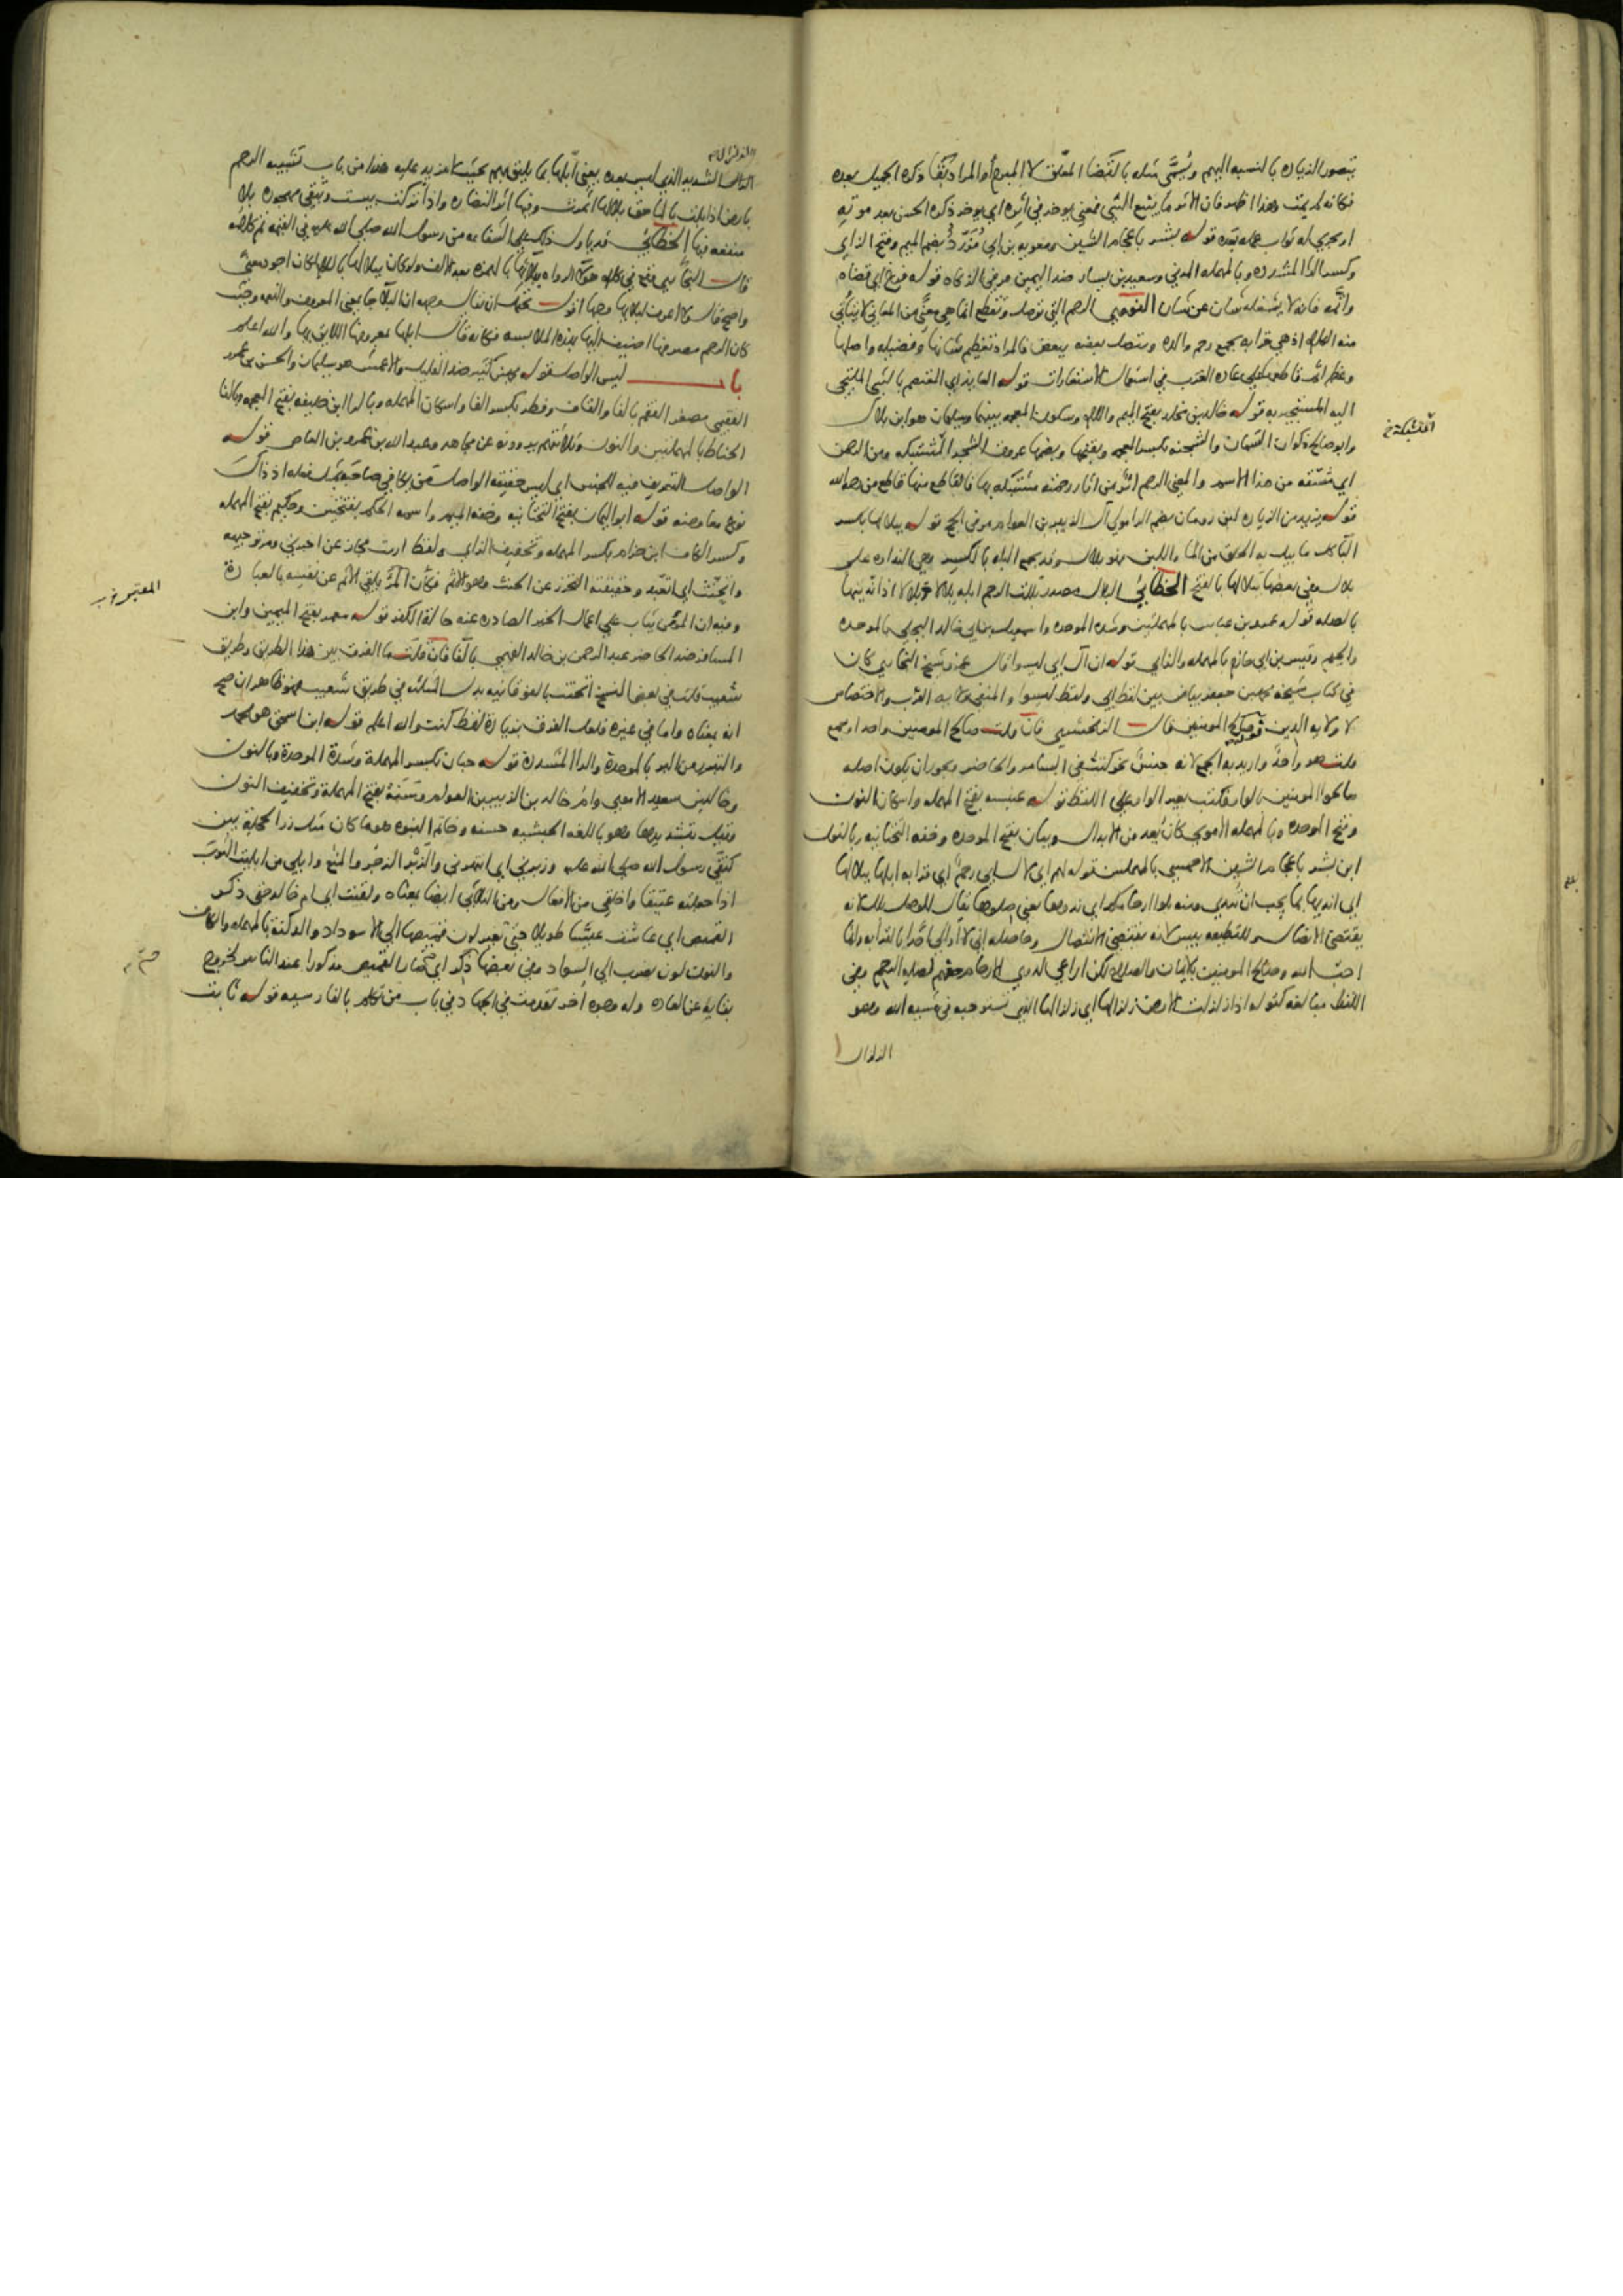 يتصور الزيادة بالنسبة اليهم ويسمى مثله بالقضا المعلق لا المبرم أو المراد بقا ذكره الجميل بعده
فكانه لم يمت وهذا اظهر فان الاثر ما يتبع الشي فمعنى يوخر في أثره اي يوخر ذكره الحسن بعد موته
او يجري له ثواب عمله بعده قوله بشر باعجام الشين ومعويه بن ابي مُزَرِّد بضم الميم وفتح الزاي
وكسر الرا المشدده وبالمهمله المدني وسعيد بن يسار ضد اليمين مر في الزكاه قوله فرغ اي قضاه
واتمه فانه لا يشغله شان عن شان النووي الرحم التي توصل وتقطع انما هي معنًى من المعاني لا يتاتى
منه الكلام اذ هي قرابه تجمع رحم والده ويتصل بعضه ببعض فالمراد تعظيم شانها وفضيله واصلها
وعظم اثم قاطعها على عاده العرب في استعمال الاستعارات قوله العايذ اي المعتصم بالشي الملتجي
اليه المستجير به قوله خالد بن مخلد بفتح الميم واللام وسكون المعجمه بينهما وسليمان هو ابن بلال
وابو صالح ذكوان السمان والشجنه بكسر المعجمه وبفتحها وبضمها عروق الشجر المشتبكه ومن الرحمن
اي مشتقه من هذا الاسم والمعنى الرحم اثر من اثار رحمته مشتبكه بها فالقاطع منها قاطع من رحمه الله
قوله يزيد من الزياده ابن رومان بضم الرا مولى آل الزبير بن العوام مر في الحج قوله ببلالها بكسر
البا كل ما يبل به الحلق من الما واللبن فهو بلال وقد يجمع البله بالكسر وهي النداوه على
بلال وفي بعضها ببلالها بالفتح الخطابي البلال مصدر بللت الرحم ابله بلالا وبِلالا اذا نديتها
بالصله قوله عمرو بن عباس بالمهملتين وشده الموحده واسمعيل بن ابي خالد البجلي بالموحده
والجيم وقيس بن ابي حازم بالمهمله والزاي قوله ان آل ابي ليسوا قال عمرو شيخ البخاري كان
في كتاب شيخه محمد بن جعفر بياض بين لفظ ابي ولفظ ليسوا والمنفي ولايه القرب والاختصاص
لا ولايه الدين قوله وصالح المومنين قال الزمخشري فان قلت صالح المومنين واحد او جمع
قلت هو واحدٌ واريد به الجمع لانه جنسٌ نحو كنت في السامر والحاضر ويجوز ان يكون اصله
صالحوا المومنين بالواو فكتب بغير الواو على اللفظ قوله عنبسه بفتح المهمله واسكان النون
وفتح الموحده وبالمهمله الاموي كان يُعد من الابدال وبيان بفتح الموحده وخفه التحتانيه وبالنون
ابن بشر باعجام الشين الاحمسي بالمهملتين قوله لهم اي لآل ابي رحمٌ اي قرابه ابلها ببلالها
اي انديها بما يجب ان تندى ومنه بلوا ارحامكم اي ندوها يعني صلوها يقال للوصل بلل لانه
يقتضي الاتصال وللقطيعه يبس لانه يقتضي الانفصال وحاصله اني لا اوالي احدًا بالقرابه وانما
احب الله وصالح المومنين بالايمان والصلاح لكن اراعي لذوي الارحام حقهم لصله الرحم وفي
اللفظ مبالغه كقوله اذا زلزلت الارض زلزالها اي زلزالها الذي تستوجبه في مشيه الله وهو
الزلزال
المشتبكة
الزلزال
الزلزال الشديد الذي ليس بعده يعني أبلها بما يليق بهم بحيث لا مزيد عليه هذا من باب تشبيه الرحم
بارض اذا بلت بالما حق بلالها اثمرت وفيها اثر النضاره واذا تركت يبست وبقى مهجوره بلا
منفعه فيها الخطابي
قال البخاري وقع في كلام هولا الرواه ببلائها بالهمزه بعد الالف ولو كان ببلالها باللام كان اجود معنى
واصح قال ولا اعرف لبلائها وجها اقول يحتمل ان يقال وجهه ان البلاء جا بمعنى المعروف والنعمه وحيث
كان الرحم مصرفها اضيف اليها بهذه الملابسه فكانه قال ابلها بمعروفها اللايق بها والله اعلم
باب ليس الواصل قوله محمد بن كثير ضد القليل والاعمش هو سليمان والحسن بن عمرو
الفقيمي مصغر الفقم بالفا والقاف وفطر بكسر الفا واسكان المهمله وبالرا ابن خليفه بفتح المعجمه وبالفا
الحناط بالمهملتين والنون وثلاثتهم يروونه عن مجاهد وعبد الله بن عمرو بن العاص قوله
الواصل التعريف فيه للجنس اي ليس حقيقه الواصل من يكافي صاحبه بمثل فعله اذ ذاك
نوع معاوضه قوله ابو اليمان بفتح التحتانيه وخفه الميم واسمه الحكم بفتحتين وحكيم بفتح المهمله
وكسر الكاف ابن حزام بكسر المهمله وتخفيف الزاي ولفظ ارايت مجاز عن اخبرني ومر توجيهه
واتحنث اي اتعبد وحقيقته التحرز عن الحنث وهو الاثم فكأن المرء يلقي الاثم عن نفسه بالعبادة
وفيه ان المومن يثاب على اعمال الخير الصادره عنه حالة الكفر قوله معمر بفتح الميمين وابن
المسافر ضد الحاضر عبد الرحمن بن خالد الفهمي بالفا فان قلت ما الفرق بين هذا الطريق وطريق
شعيب قلت في بعض النسخ اتحنت بالفوقانيه بدل المثلثه في طريق شعيب فهو ظاهر ان صح
انه بمعناه واما في غيره فلعل الفرق بزيادة لفظ كنت والله اعلم قوله ابن اسحق هو محمد
والتبرر من البر بالموحدة والرا المشددة قوله حبان بكسر المهملة وشدة الموحدة وبالنون
وخالد بن سعيد الاموي وام خالد بن الزبير بن العوام وسَنَه بفتح المهملة وتخفيف النون
وقيل بتشديدها وهو باللغه الحبشيه حسنه وخاتم النبوه هو ما كان مثل زر الحجلة بين
كتفي رسول الله صلى الله عليه وزبرني اي انتهرني والزبر الزجر والمنع وابلي من ابليت الثوب
اذا جعلته عتيقا واخلقي من الافعال ومن الثلاثي ايضا بمعناه وبقيت اي ام خالد حتى دكن
القميص اي عاشت عيشا طويلا حتى تغير لون قميصها الى الاسوداد والدكنة بالمهمله والكاف
والنون لون يضرب الى السواد وفي بعضها ذكر اي صار القميص مذكورا عند الناس لخروج
بقايه عن العاده وله وجوه أخر تقدمت في الجهاد في باب من تكلم بالفارسيه قوله ثابت